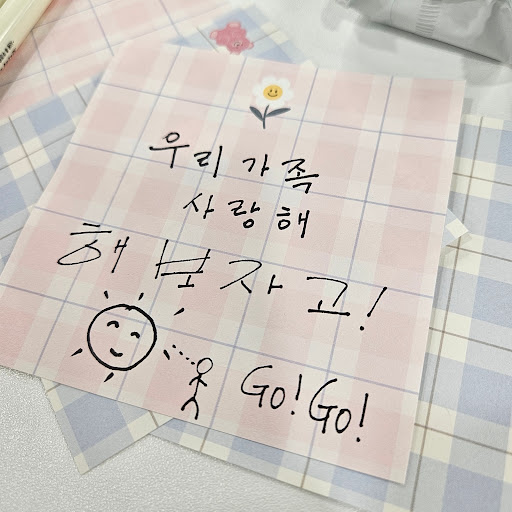 우리 가족
사랑해
해보자고!
Go! Go!